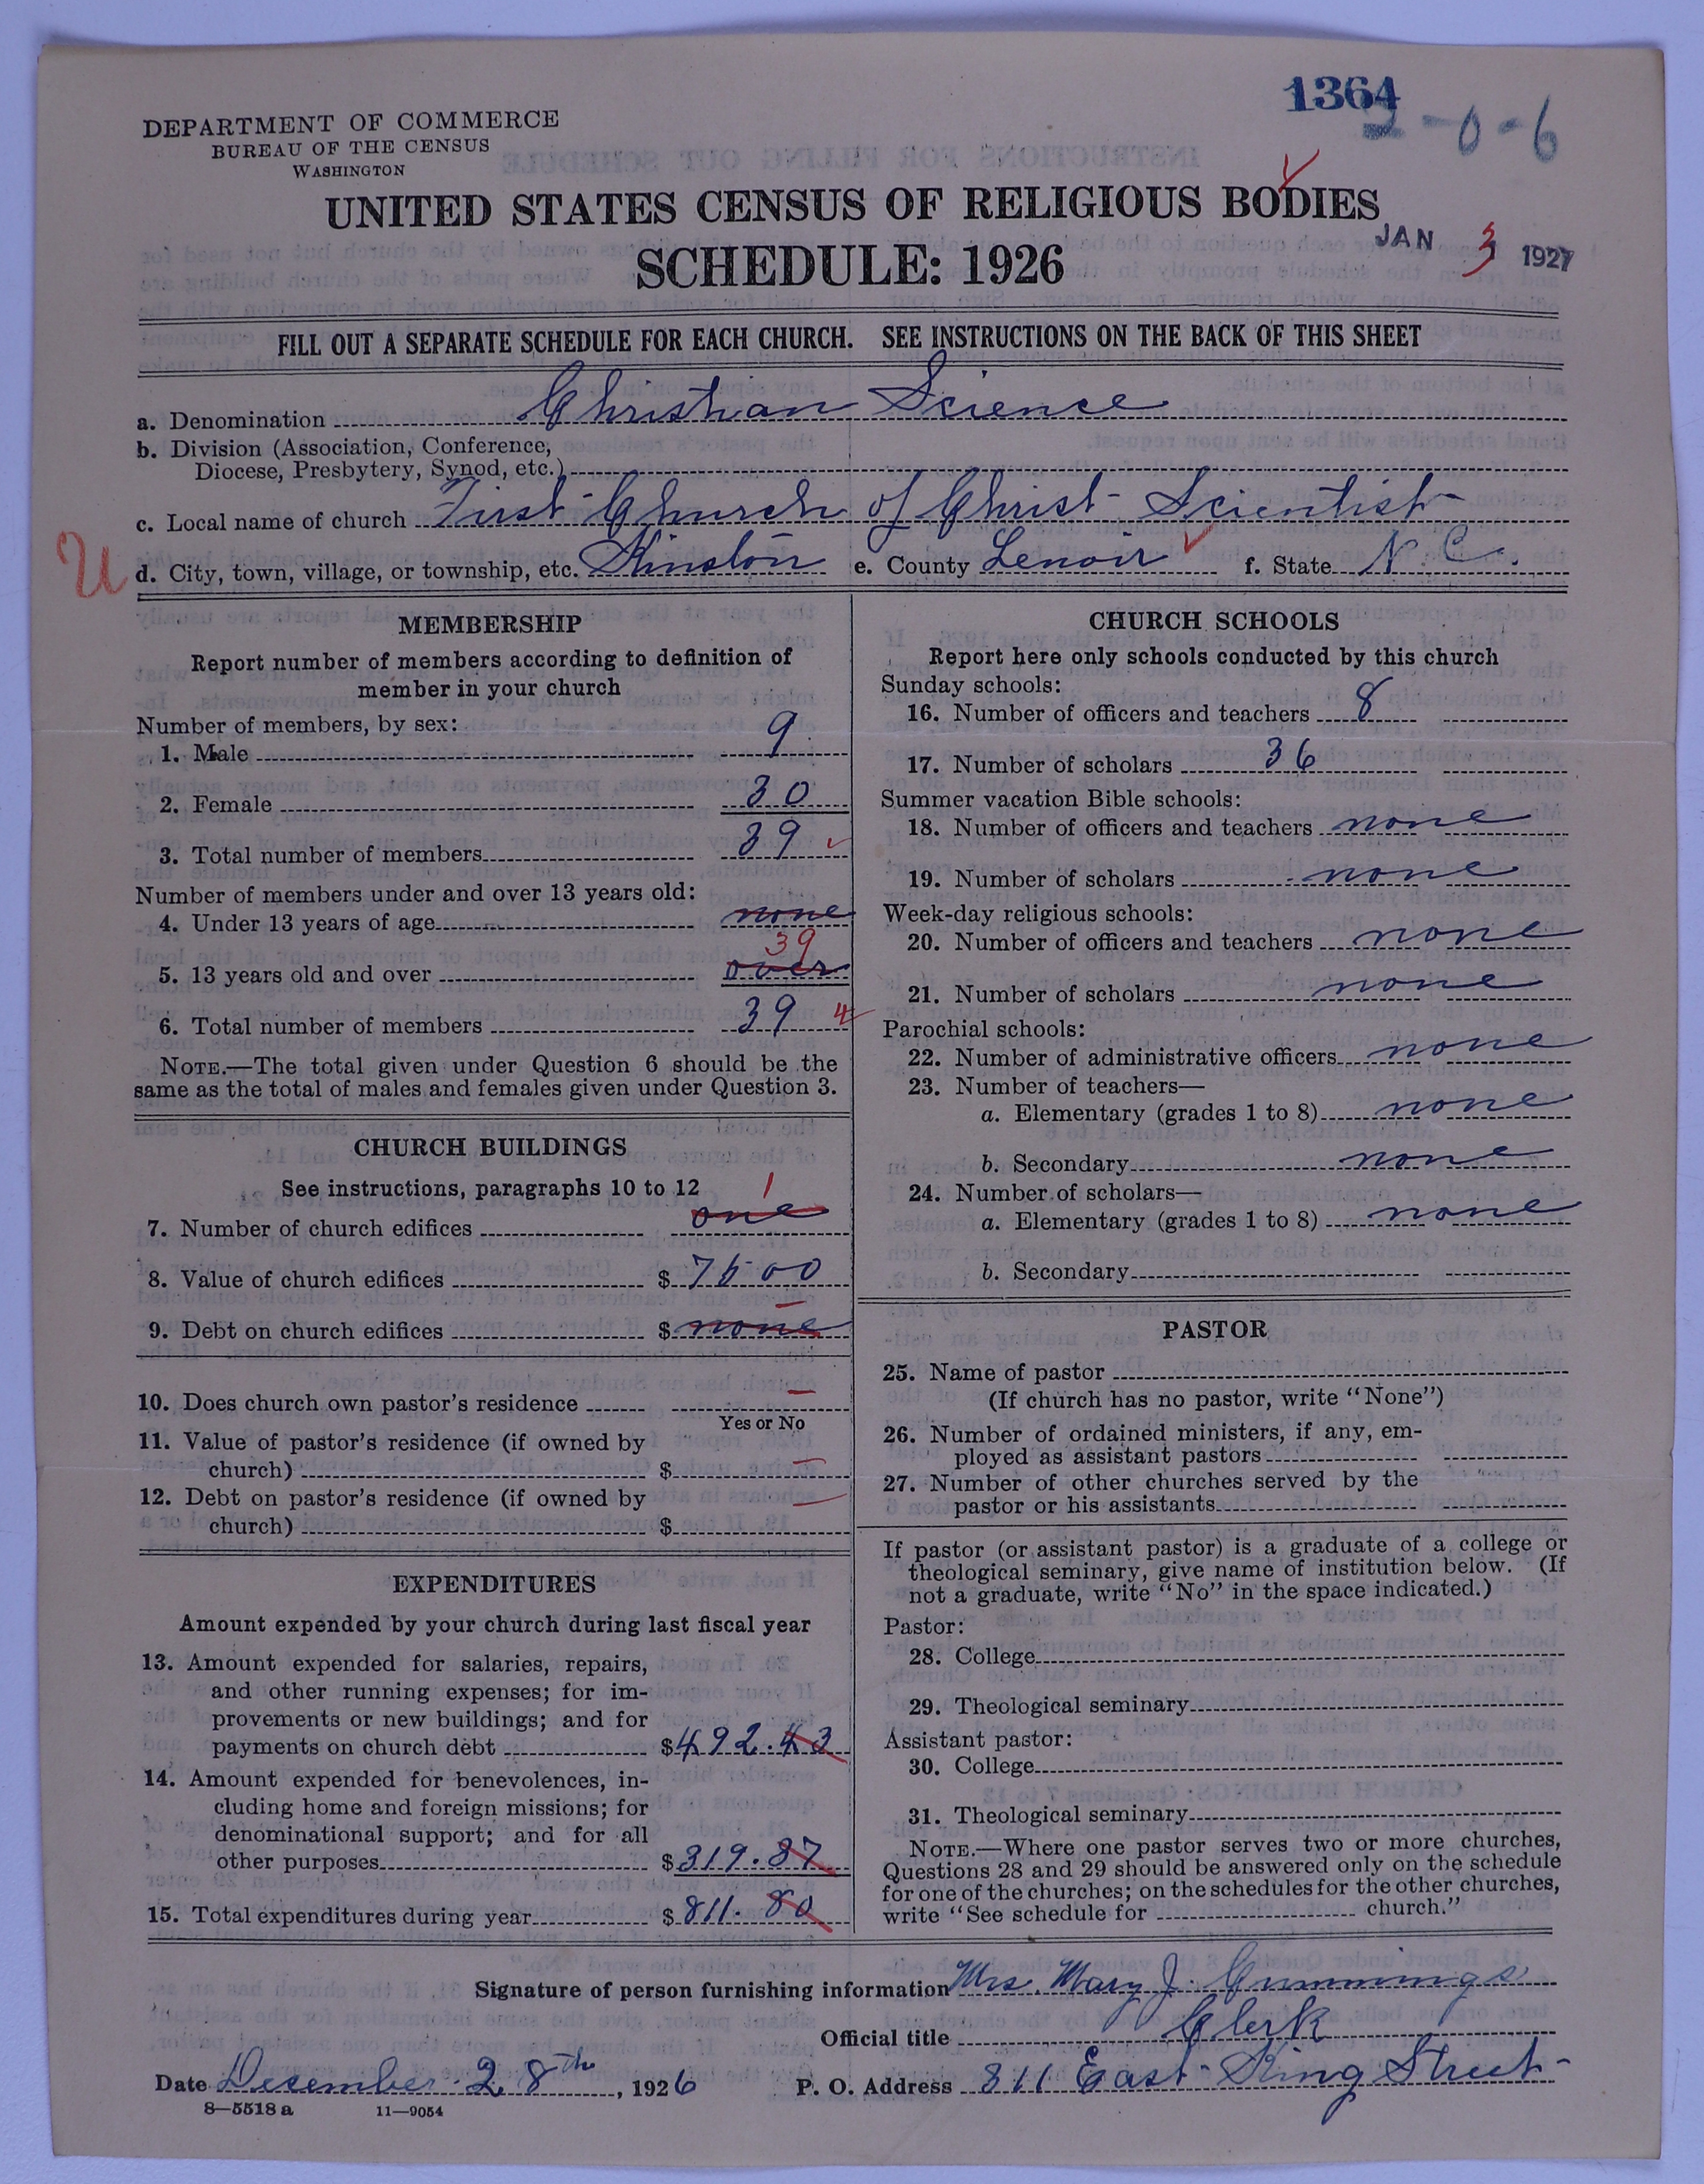 1364
2-0-6
DEPARTMENT OF COMMERCE
BUREAU OF THE CENSUS
WASHINGTON
UNITED STATES CENSUS OF RELIGIOUS BODIES
SCHEDULE: 1926
JAN 3 1927
FILL OUT A SEPARATE SCHEDULE FOR EACH CHURCH. SEE INSTRUCTIONS ON THE BACK OF THIS SHEET
a. Denomination Christian Science
b. Division (Association, Conference,
Diocese, Presbytery, Synod, etc.)
c. Local name of church First Church of Christ Scientist
U d. City, town, village, or township, etc. Kinston e. County Lenoir f. State N. C.
MEMBERSHIP
Report number of members according to definition of
member in your church
Number of members, by sex:
1. Male 9
2. Female 30
3. Total number of members 39
Number of members under and over 13 years old:
4. Under 13 years of age none
39
5. 13 years old and over over
6. Total number of members 39 4
NOTE.—The total given under Question 6 should be the
same as the total of males and females given under Question 3.
CHURCH BUILDINGS
See instructions, paragraphs 10 to 12
1
7. Number of church edifices one
8. Value of church edifices $ 7500
9. Debt on church edifices $ none
10. Does church own pastor's residence —
Yes or No
11. Value of pastor's residence (if owned by
church) $ —
12. Debt on pastor's residence (if owned by
church) $ —
EXPENDITURES
Amount expended by your church during last fiscal year
13. Amount expended for salaries, repairs,
and other running expenses; for im-
provements or new buildings; and for
payments on church debt $ 492.43
14. Amount expended for benevolences, in-
cluding home and foreign missions; for
denominational support; and for all
other purposes $ 319.37
15. Total expenditures during year $ 811.80
CHURCH SCHOOLS
Report here only schools conducted by this church
Sunday schools:
16. Number of officers and teachers 8
17. Number of scholars 36
Summer vacation Bible schools:
18. Number of officers and teachers none
19. Number of scholars none
Week-day religious schools:
20. Number of officers and teachers none
21. Number of scholars none
Parochial schools:
22. Number of administrative officers none
23. Number of teachers—
a. Elementary (grades 1 to 8) none
b. Secondary none
24. Number of scholars—
a. Elementary (grades 1 to 8) none
b. Secondary
PASTOR
25. Name of pastor
(If church has no pastor, write "None")
26. Number of ordained ministers, if any, em-
ployed as assistant pastors
27. Number of other churches served by the
pastor or his assistants
If pastor (or assistant pastor) is a graduate of a college or
theological seminary, give name of institution below. (If
not a graduate, write "No" in the space indicated.)
Pastor:
28. College
29. Theological seminary
Assistant pastor:
30. College
31. Theological seminary
NOTE.—Where one pastor serves two or more churches,
Questions 28 and 29 should be answered only on the schedule
for one of the churches; on the schedules for the other churches,
write "See schedule for church."
Signature of person furnishing information Mrs. Mary J. Cummings
Official title Clerk
Date December 28th, 1926 P. O. Address 811 East King Street
8—5518 a 11—9054